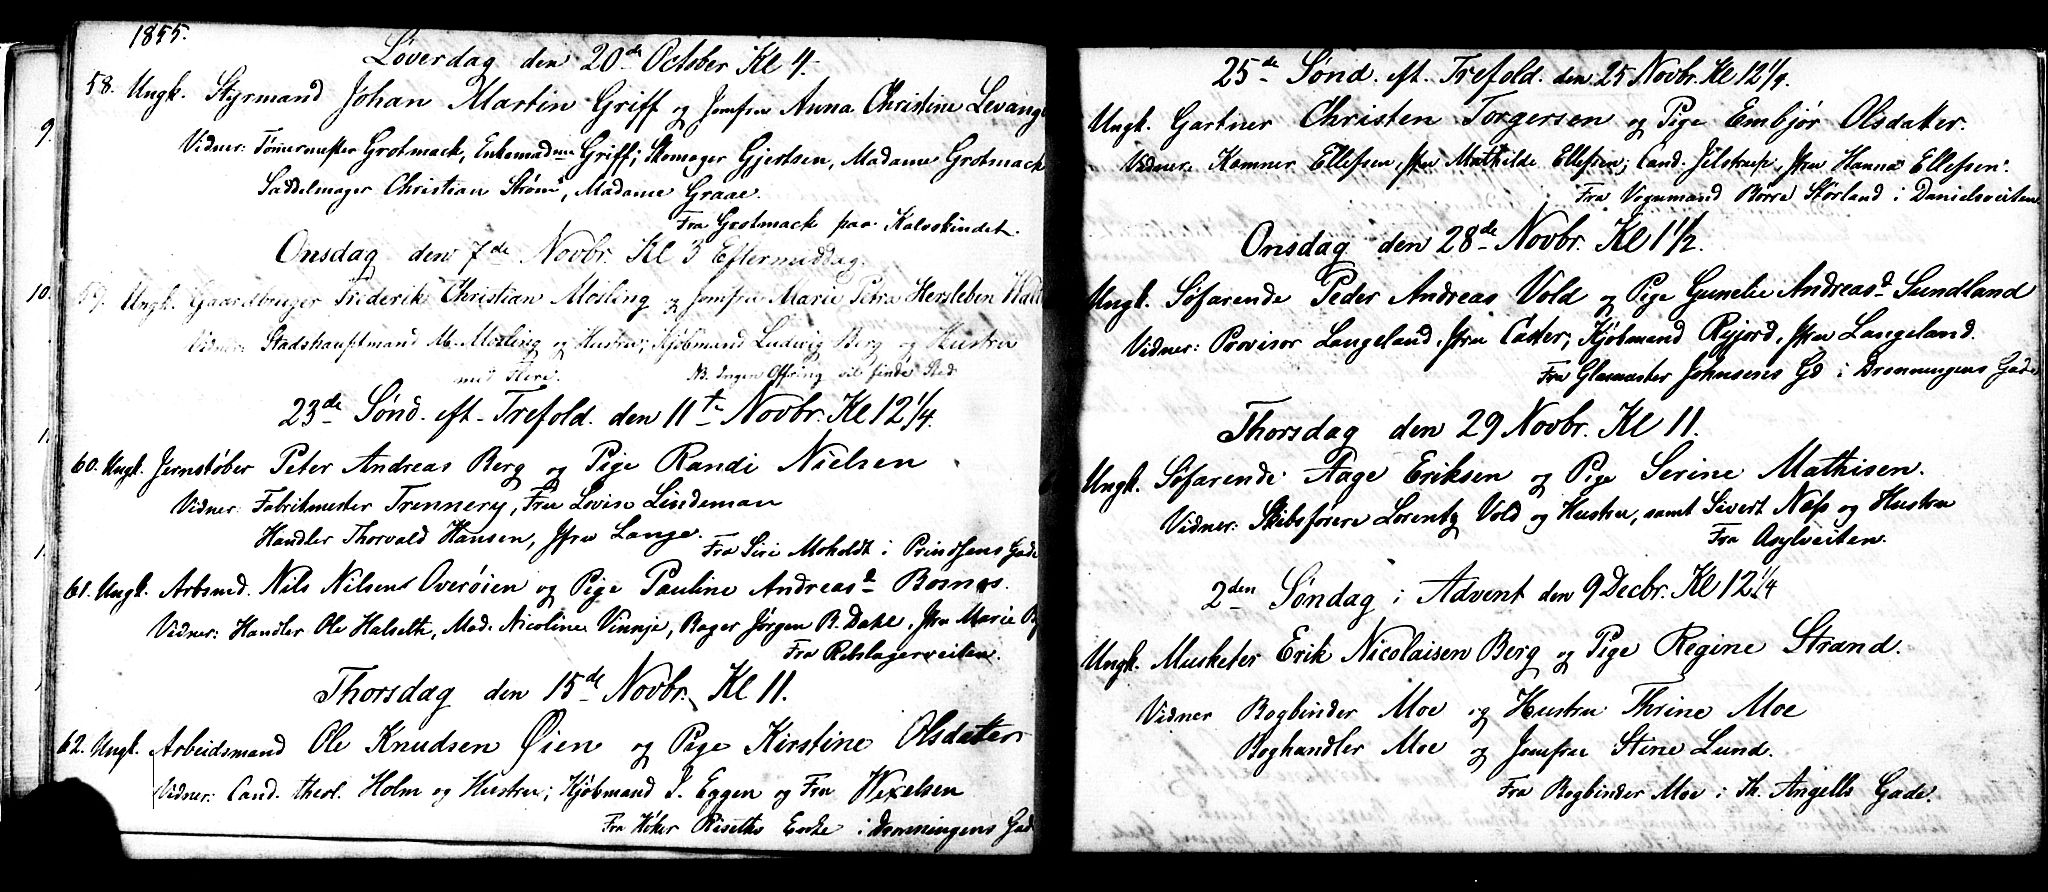 1855.
Løverdag den 20de October Kl 4.
58. Ungk. Styrmand Johan Martin Griff og Jomfru Anna Christine Levang
9. Vidner: Tømermester Grotmack, Enkemadme Griff; Skomager Gjertsen, Madame Grotmack
Saddelmager Christian Strøm, Madame Graae.
Fra Grotmack paa Kalvskindet.
Onsdag den 7de Novbr. Kl 3 Eftermiddag.
10. 59. Ungk. Gaardbruger Friderik Christian Mosling og Jomfru Marie Petra Hersleben
Vidner: Stadshauptmand M. Mosling og Hustru; Kjøbmand Ludvig Berg og Hustru
med Flere. NB. Ingen Offring vil finde Sted
23de Sønd. eft. Trefold. den 11te Novbr. Kl 12 1/4.
60. Ungk. Jernstøber Peter Andreas Berg og Pige Randi Nielsen
Vidner: Fabrikmester Trennery, Fru Lovise Lindeman
Handler Thorvald Hansen, Jfru Lange.
Fra Siri Moholdt i Prindsens Gade
61. Ungk. Arbmd. Nils Nilsen Overøien og Pige Pauline Andreasd Bosnes.
Vidner: Handler Ole Halseth, Mad. Nicoline Vinnje, Bager Jørgen B. Dahl, Jfru Marie
Fra Rebslagerveiten.
Thorsdag den 15de Novbr. Kl 11.
62. Ungk. Arbeidsmand Ole Knudsen Øien og Pige Kirstine Olsdatter
Vidner: Cand. theol. Holm og Hustru; Kjøbmand J. Eggen og Fru Wexelsen
Fra Riseths Enke i Dronningens Gad
25de Sønd. eft. Trefold. den 25 Novbr. Kl 12 1/4.
Ungk. Gartner Christen Torgersen og Pige Embjør Olsdatter.
Vidner: Kemner Ellefsen, Jfru Mathilde Ellefsen; Cand. Jelstrup, Jfru Hanna Ellefsen.
Fra Vognmand Børre Størland i Danielsveiten
Onsdag den 28de Novbr. Kl 1 1/2.
Ungk. Søfarende Peder Andreas Vold og Pige Gunelie Andreasd Sundland
Vidner: Provisor Langeland, Jfru Coster, Kjøbmand Ryjord, Jfru Langeland.
Fra Glasmester Johnsens Gd i Dronningens Gade
Thorsdag den 29 Novbr. Kl 11.
Ungk. Søfarende Aage Eriksen og Pige Serine Mathisen.
Vidner: Skibsførere Lorentz Vold og Hustru, samt Sivert Næss og Hustru
Fra Asylveiten.
2den Søndag i Advent den 9 Decbr. Kl 12 1/4
Ungk. Musketer Erik Nicolaisen Berg og Pige Regine Strand.
Vidner Bogbinder Moe og Hustru Thrine Moe
Boghandler Moe og Jomfru Stine Lund.
Fra Bogbinder Moe i Th. Angells Gade.